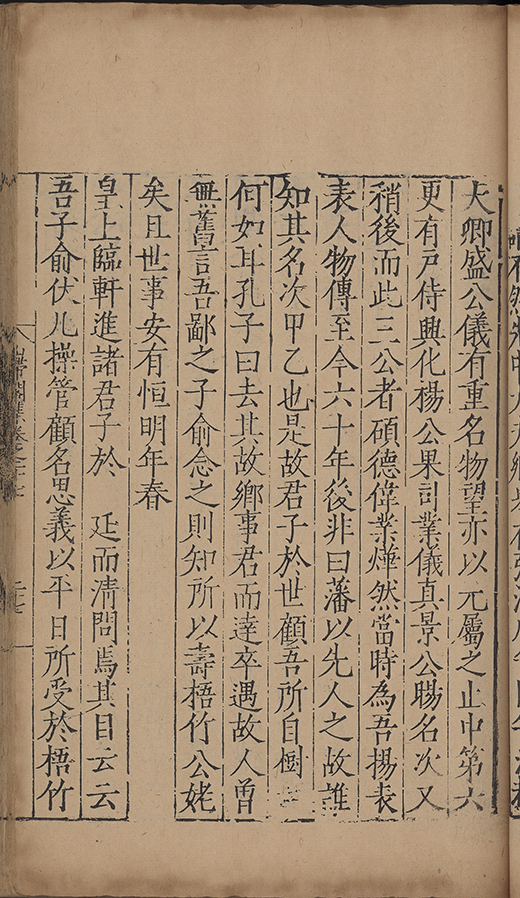 大卿盛公儀有重名物望亦以元屬之止中第六
更有戸侍興化楊公果司業儀真景公賜名次又
稍後而此三公者碩德偉業燁然當時為吾揚表
表人物傳至今六十年後非曰藩以先人之故誰
知其名次甲乙也是故君子於世顧吾所自樹
何如耳孔子曰去其故鄉事君而達卒遇故人曾
無舊言吾鄙之子俞念之則知所以壽梧竹公姥
矣且世事安有恒明年春
皇上臨軒進諸君子於 廷而清問焉其目云云
吾子俞伏几操管顧名思義以平日所受於梧竹